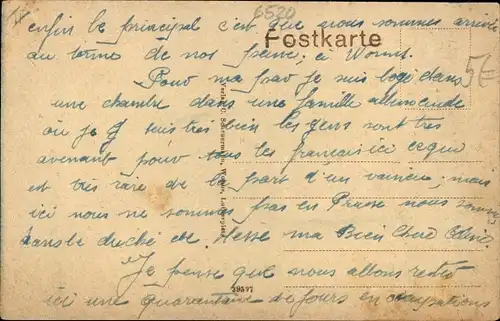 6520
Postkarte
5€
enfin le principal c'est que nous sommes arrivé
au terme de nos peine, a Worms.
Pour ma par je suis logé dans
une chambre dans une famille allemande
où je suis très bien les gens sont très
avenant pour tous les francais ici ce qui
est très rare de la part d'un vaincu, mais
ici nous ne sommes pas en Prusse nous sommes
dans le duché de Hesse ma Bien Chere
Je pense que nous allons resté
ici une quarantaine de jours en occupations
39597